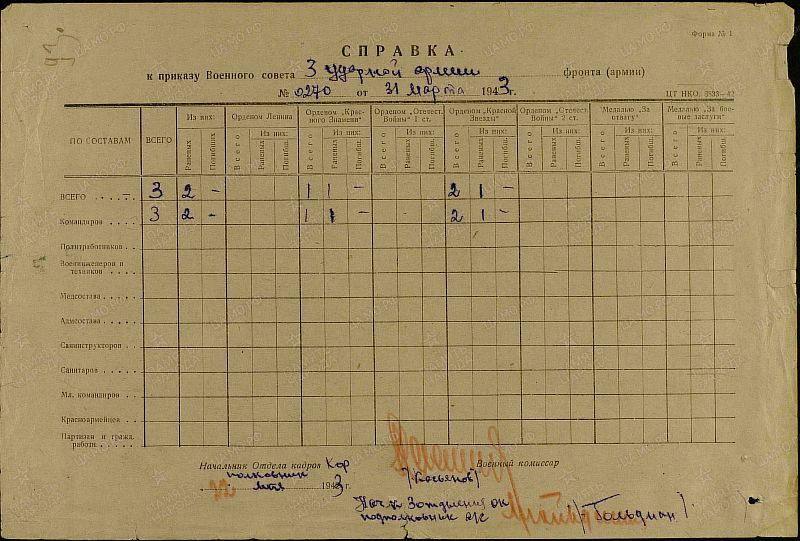 93.
Форма № 1
СПРАВКА
к приказу Военного совета 3 ударной армии фронта (армии)
№ 0270 от 31 марта 1943г.
ЦТ НКО. 3533—42
ПО СОСТАВАМ ВСЕГО Из них: Орденом Ленина Орденом „Красного Знамени“ Орденом „Отечест. Войны“ 1 ст. Орденом „Красной Звезды“ Орденом „Отечест. Войны“ 2 ст. Медалью „За отвагу“ Медалью „За боевые заслуги“
Раненых Погибших Всего Из них: Раненых Погибш. Всего Из них: Раненых Погибш. Всего Из них: Раненых Погибш. Всего Из них: Раненых Погибш. Всего Из них: Раненых Погибш. Всего Из них: Раненых Погибш. Всего Из них: Раненых Погибш.
ВСЕГО . . . . . . 3 2 - 1 1 - 2 1 -
Командиров . . . . 3 2 - 1 1 - 2 1 -
Политработников . .
Военинженеров и техников . . . .
Медсостава . . . . .
Адмсостава . . . . .
Санинструкторов . .
Санитаров . . . . .
Мл. командиров . .
Красноармейцев . .
Партизан и гражд. работн. . . . . .
Начальник Отдела кадров
Военный комиссар
полковник
22 мая 1943г.
Нач-к 3 отделения ОК
подполковник а/с
/Гольдман/